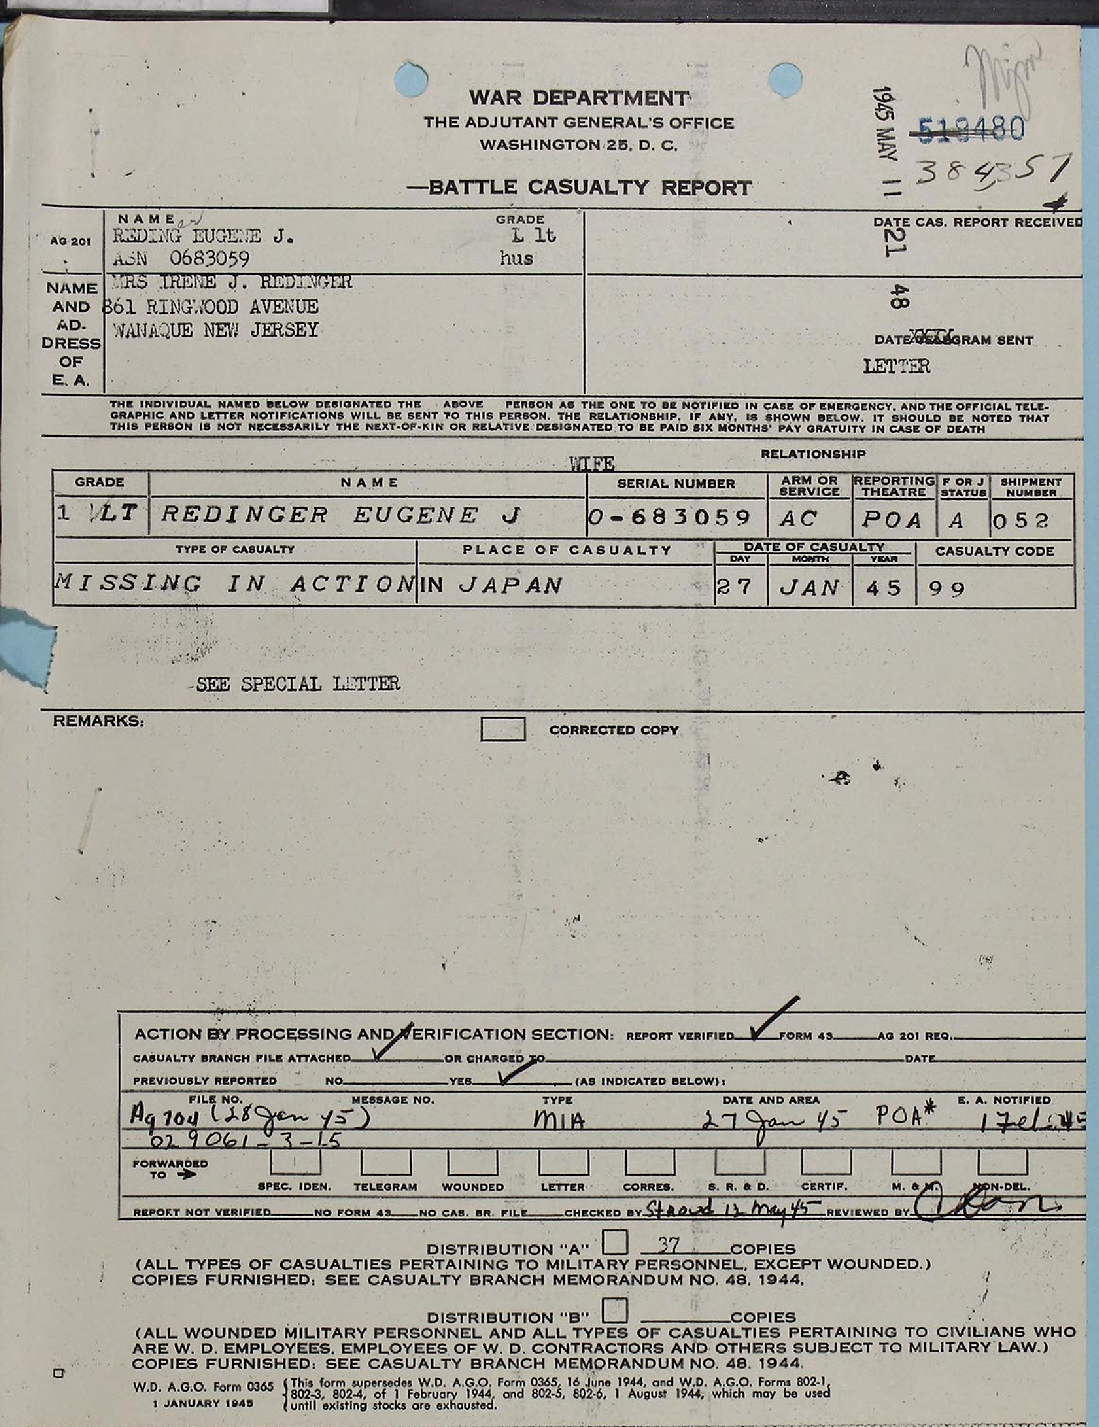 WAR DEPARTMENT
THE ADJUTANT GENERAL'S OFFICE
WASHINGTON 25, D. C.
—BATTLE CASUALTY REPORT
1945 MAY 11
519480
384357
NAME
GRADE
DATE CAS. REPORT RECEIVED
AG 201
REDING EUGENE J.
1 lt
21
ASN 0683059
hus
NAME AND AD- DRESS OF E. A.
MRS IRENE J. REDINGER
861 RINGWOOD AVENUE
48
WANAQUE NEW JERSEY
DATE TELEGRAM SENT
LETTER
THE INDIVIDUAL NAMED BELOW DESIGNATED THE ABOVE PERSON AS THE ONE TO BE NOTIFIED IN CASE OF EMERGENCY, AND THE OFFICIAL TELE-
GRAPHIC AND LETTER NOTIFICATIONS WILL BE SENT TO THIS PERSON. THE RELATIONSHIP, IF ANY, IS SHOWN BELOW. IT SHOULD BE NOTED THAT
THIS PERSON IS NOT NECESSARILY THE NEXT-OF-KIN OR RELATIVE DESIGNATED TO BE PAID SIX MONTHS' PAY GRATUITY IN CASE OF DEATH
WIFE
RELATIONSHIP
GRADE NAME SERIAL NUMBER ARM OR SERVICE REPORTING THEATRE F OR J STATUS SHIPMENT NUMBER
1 LT REDINGER EUGENE J 0-683059 AC POA A 052
TYPE OF CASUALTY PLACE OF CASUALTY DATE OF CASUALTY CASUALTY CODE
DAY MONTH YEAR
MISSING IN ACTION IN JAPAN 27 JAN 45 99
SEE SPECIAL LETTER
REMARKS:
CORRECTED COPY
ACTION BY PROCESSING AND VERIFICATION SECTION: REPORT VERIFIED FORM 43 AG 201 REQ.
CASUALTY BRANCH FILE ATTACHED OR CHARGED TO DATE
PREVIOUSLY REPORTED NO YES (AS INDICATED BELOW):
FILE NO. MESSAGE NO. TYPE DATE AND AREA E. A. NOTIFIED
Ag 704 (28 Jan 45) MIA 27 Jan 45 POA*
029061-3-15
FORWARDED TO →
SPEC. IDEN. TELEGRAM WOUNDED LETTER CORRES. S. R. & D. CERTIF. M. & NON-DEL.
REPORT NOT VERIFIED NO FORM 43 NO CAS. BR. FILE CHECKED BY 12 May 45 REVIEWED BY
DISTRIBUTION "A" 37 COPIES
(ALL TYPES OF CASUALTIES PERTAINING TO MILITARY PERSONNEL, EXCEPT WOUNDED.)
COPIES FURNISHED: SEE CASUALTY BRANCH MEMORANDUM NO. 48, 1944.
DISTRIBUTION "B" COPIES
(ALL WOUNDED MILITARY PERSONNEL AND ALL TYPES OF CASUALTIES PERTAINING TO CIVILIANS WHO
ARE W. D. EMPLOYEES, EMPLOYEES OF W. D. CONTRACTORS AND OTHERS SUBJECT TO MILITARY LAW.)
COPIES FURNISHED: SEE CASUALTY BRANCH MEMORANDUM NO. 48, 1944.
W.D. A.G.O. Form 0365
1 JANUARY 1945
This form supersedes W.D. A.G.O. Form 0365, 16 June 1944, and W.D. A.G.O. Forms 802-1,
802-3, 802-4, of 1 February 1944, and 802-5, 802-6, 1 August 1944, which may be used
until existing stocks are exhausted.